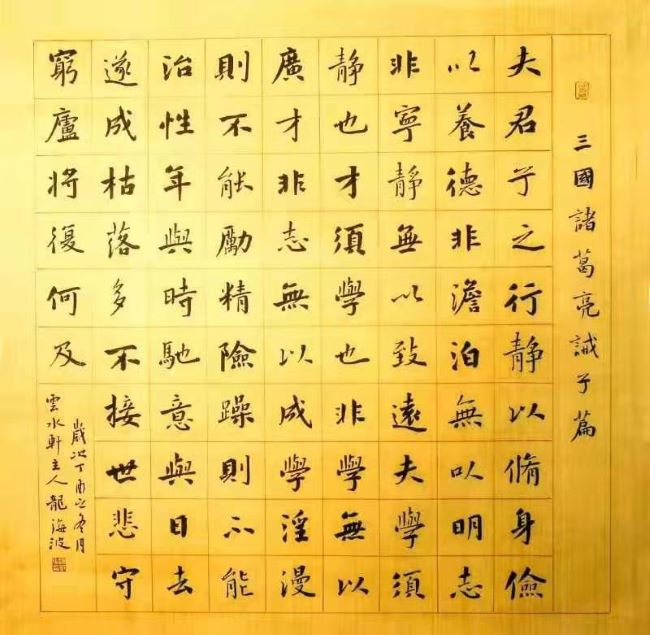 三國諸葛亮誡子篇
夫君子之行靜以脩身儉
以養德非澹泊無以明志
非寧靜無以致遠夫學須
靜也才須學也非學無以
廣才非志無以成學淫漫
則不能勵精險躁則不能
治性年與時馳意與日去
遂成枯落多不接世悲守
窮廬將復何及
歲次丁酉之冬月
雲水軒主人龍海波